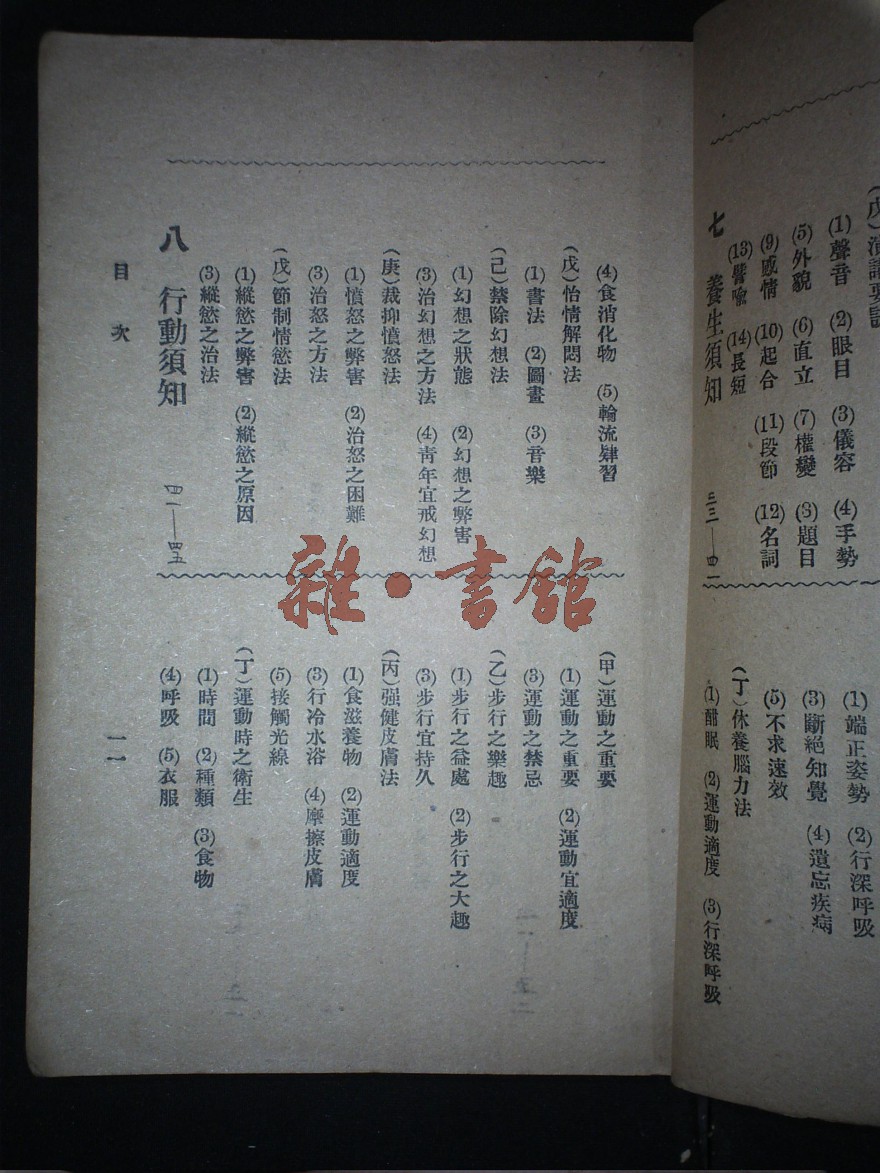 (戊)演講要訣
(1)聲音 (2)眼目 (3)儀容 (4)手勢
(5)外貌 (6)直立 (7)權變 (8)題目
(9)感情 (10)起合 (11)段節 (12)名詞
(13)譬喻 (14)長短
七 養生須知 三三—四一
(1)端正姿勢 (2)行深呼吸
(3)斷絕知覺 (4)遺忘疾病
(5)不求速效
(丁)休養腦力法
(1)酣眠 (2)運動適度 (3)行深呼吸
(4)食消化物 (5)輪流肄習
(戊)怡情解悶法
(1)書法 (2)圖畫 (3)音樂
(己)禁除幻想法
(1)幻想之狀態 (2)幻想之弊害
(3)治幻想之方法 (4)靑年宜戒幻想
(庚)裁抑憤怒法
(1)憤怒之弊害 (2)治怒之困難
(3)治怒之方法
(戊)節制情慾法
(1)縱慾之弊害 (2)縱慾之原因
(3)縱慾之治法
八 行動須知 四一—四五
(甲)運動之重要
(1)運動之重要 (2)運動宜適度
(3)運動之禁忌
(乙)步行之樂趣
(1)步行之益處 (2)步行之大趣
(3)步行宜持久
(丙)强健皮膚法
(1)食滋養物 (2)運動適度
(3)行冷水浴 (4)摩擦皮膚
(5)接觸光線
(丁)運動時之衛生
(1)時間 (2)種類 (3)食物
(4)呼吸 (5)衣服
目次
一一
雜·書館